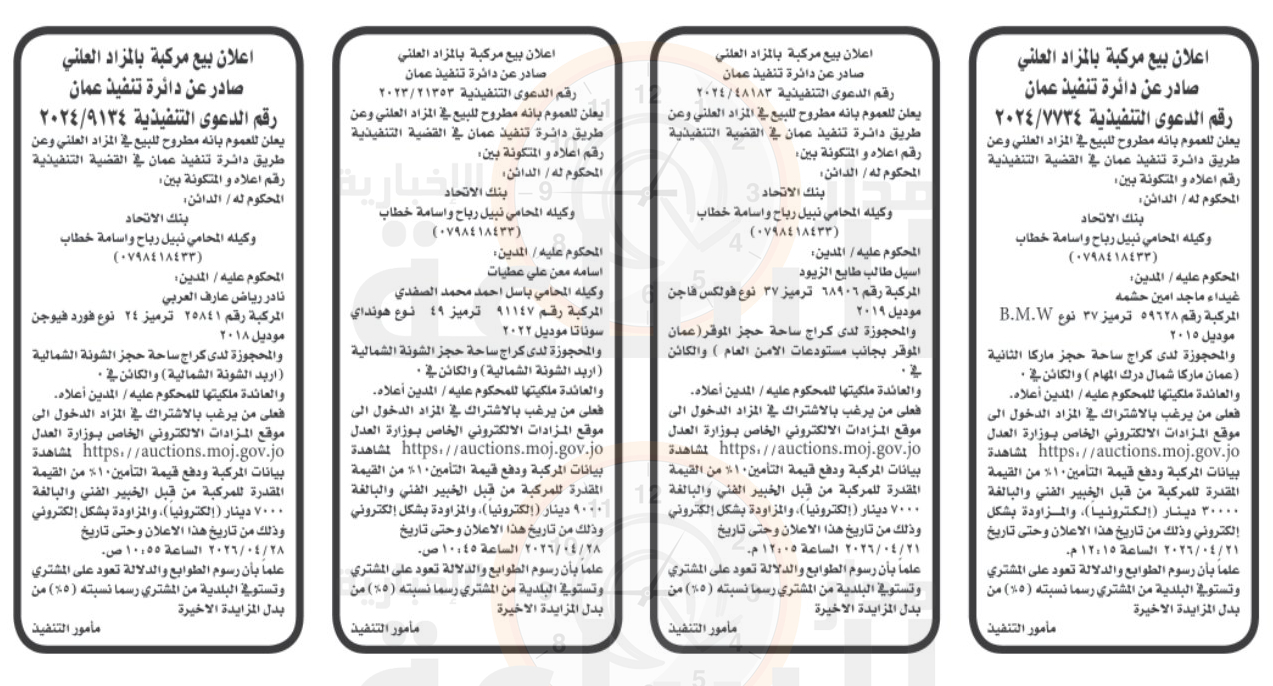 اعلان بيع مركبة بالمزاد العلني
صادر عن دائرة تنفيذ عمان
رقم الدعوى التنفيذية ٢٠٢٤/٧٧٣٤
يعلن للعموم بانه مطروح للبيع في المزاد العلني وعن
طريق دائرة تنفيذ عمان في القضية التنفيذية
رقم اعلاه و المتكونة بين:
المحكوم له / الدائن:
بنك الاتحاد
وكيله المحامي نبيل رباح واسامة خطاب
(٠٧٩٨٤١٨٤٣٣)
المحكوم عليه / المدين:
غيداء ماجد امين حشمه
المركبة رقم ٥٩٦٢٨ ترميز ٣٧ نوع B.M.W
موديل ٢٠١٥
والمحجوزة لدى كراج ساحة حجز ماركا الثانية
(عمان ماركا شمال درك المهام ) والكائن في ٠
والعائدة ملكيتها للمحكوم عليه / المدين أعلاه.
فعلى من يرغب بالاشتراك في المزاد الدخول الى
موقع المزادات الالكتروني الخاص بوزارة العدل
https://auctions.moj.gov.jo لمشاهدة
بيانات المركبة ودفع قيمة التأمين ١٠٪ من القيمة
المقدرة للمركبة من قبل الخبير الفني والبالغة
٣٠٠٠٠ دينار (إلكترونياً)، والمزاودة بشكل
إلكتروني وذلك من تاريخ هذا الاعلان وحتى تاريخ
٢٠٢٦/٠٤/٢١ الساعة ١٢:١٥ م.
علماً بأن رسوم الطوابع والدلالة تعود على المشتري
وتستوفي البلدية من المشتري رسما نسبته (٥٪) من
بدل المزايدة الاخيرة
مأمور التنفيذ
اعلان بيع مركبة بالمزاد العلني
صادر عن دائرة تنفيذ عمان
رقم الدعوى التنفيذية ٢٠٢٤/٤٨١٨٣
يعلن للعموم بانه مطروح للبيع في المزاد العلني وعن
طريق دائرة تنفيذ عمان في القضية التنفيذية
رقم اعلاه و المتكونة بين:
المحكوم له / الدائن:
بنك الاتحاد
وكيله المحامي نبيل رباح واسامة خطاب
(٠٧٩٨٤١٨٤٣٣)
المحكوم عليه / المدين:
اسيل طالب طايع الزيود
المركبة رقم ٦٨٩٠٦ ترميز ٣٧ نوع فولكس فاجن
موديل ٢٠١٩
والمحجوزة لدى كراج ساحة حجز الموقر(عمان
الموقر بجانب مستودعات الامن العام ) والكائن
في ٠
والعائدة ملكيتها للمحكوم عليه / المدين أعلاه.
فعلى من يرغب بالاشتراك في المزاد الدخول الى
موقع المزادات الالكتروني الخاص بوزارة العدل
https://auctions.moj.gov.jo لمشاهدة
بيانات المركبة ودفع قيمة التأمين ١٠٪ من القيمة
المقدرة للمركبة من قبل الخبير الفني والبالغة
٧٠٠٠ دينار (إلكترونياً)، والمزاودة بشكل إلكتروني
وذلك من تاريخ هذا الاعلان وحتى تاريخ
٢٠٢٦/٠٤/٢١ الساعة ١٢:٠٥ م.
علماً بأن رسوم الطوابع والدلالة تعود على المشتري
وتستوفي البلدية من المشتري رسما نسبته (٥٪) من
بدل المزايدة الاخيرة
مأمور التنفيذ
اعلان بيع مركبة بالمزاد العلني
صادر عن دائرة تنفيذ عمان
رقم الدعوى التنفيذية ٢٠٢٣/٢١٣٥٣
يعلن للعموم بانه مطروح للبيع في المزاد العلني وعن
طريق دائرة تنفيذ عمان في القضية التنفيذية
رقم اعلاه و المتكونة بين:
المحكوم له / الدائن:
بنك الاتحاد
وكيله المحامي نبيل رباح واسامة خطاب
(٠٧٩٨٤١٨٤٣٣)
المحكوم عليه / المدين:
اسامه معن علي عطيات
وكيله المحامي باسل احمد محمد الصفدي
المركبة رقم ٩١١٤٧ ترميز ٤٩ نوع هونداي
سوناتا موديل ٢٠٢٢
والمحجوزة لدى كراج ساحة حجز الشونة الشمالية
(اربد الشونة الشمالية) والكائن في ٠
والعائدة ملكيتها للمحكوم عليه / المدين أعلاه.
فعلى من يرغب بالاشتراك في المزاد الدخول الى
موقع المزادات الالكتروني الخاص بوزارة العدل
https://auctions.moj.gov.jo لمشاهدة
بيانات المركبة ودفع قيمة التأمين ١٠٪ من القيمة
المقدرة للمركبة من قبل الخبير الفني والبالغة
٩٠٠٠ دينار (إلكترونياً)، والمزاودة بشكل إلكتروني
وذلك من تاريخ هذا الاعلان وحتى تاريخ
٢٠٢٦/٠٤/٢٨ الساعة ١٠:٤٥ ص.
علماً بأن رسوم الطوابع والدلالة تعود على المشتري
وتستوفي البلدية من المشتري رسما نسبته (٥٪) من
بدل المزايدة الاخيرة
مأمور التنفيذ
اعلان بيع مركبة بالمزاد العلني
صادر عن دائرة تنفيذ عمان
رقم الدعوى التنفيذية ٢٠٢٤/٩١٣٤
يعلن للعموم بانه مطروح للبيع في المزاد العلني وعن
طريق دائرة تنفيذ عمان في القضية التنفيذية
رقم اعلاه و المتكونة بين:
المحكوم له / الدائن:
بنك الاتحاد
وكيله المحامي نبيل رباح واسامة خطاب
(٠٧٩٨٤١٨٤٣٣)
المحكوم عليه / المدين:
نادر رياض عارف العربي
المركبة رقم ٢٥٨٤١ ترميز ٢٤ نوع فورد فيوجن
موديل ٢٠١٨
والمحجوزة لدى كراج ساحة حجز الشونة الشمالية
(اربد الشونة الشمالية) والكائن في ٠
والعائدة ملكيتها للمحكوم عليه / المدين أعلاه.
فعلى من يرغب بالاشتراك في المزاد الدخول الى
موقع المزادات الالكتروني الخاص بوزارة العدل
https://auctions.moj.gov.jo لمشاهدة
بيانات المركبة ودفع قيمة التأمين ١٠٪ من القيمة
المقدرة للمركبة من قبل الخبير الفني والبالغة
٧٠٠٠ دينار (إلكترونياً)، والمزاودة بشكل إلكتروني
وذلك من تاريخ هذا الاعلان وحتى تاريخ
٢٠٢٦/٠٤/٢٨ الساعة ١٠:٥٥ ص.
علماً بأن رسوم الطوابع والدلالة تعود على المشتري
وتستوفي البلدية من المشتري رسما نسبته (٥٪) من
بدل المزايدة الاخيرة
مأمور التنفيذ